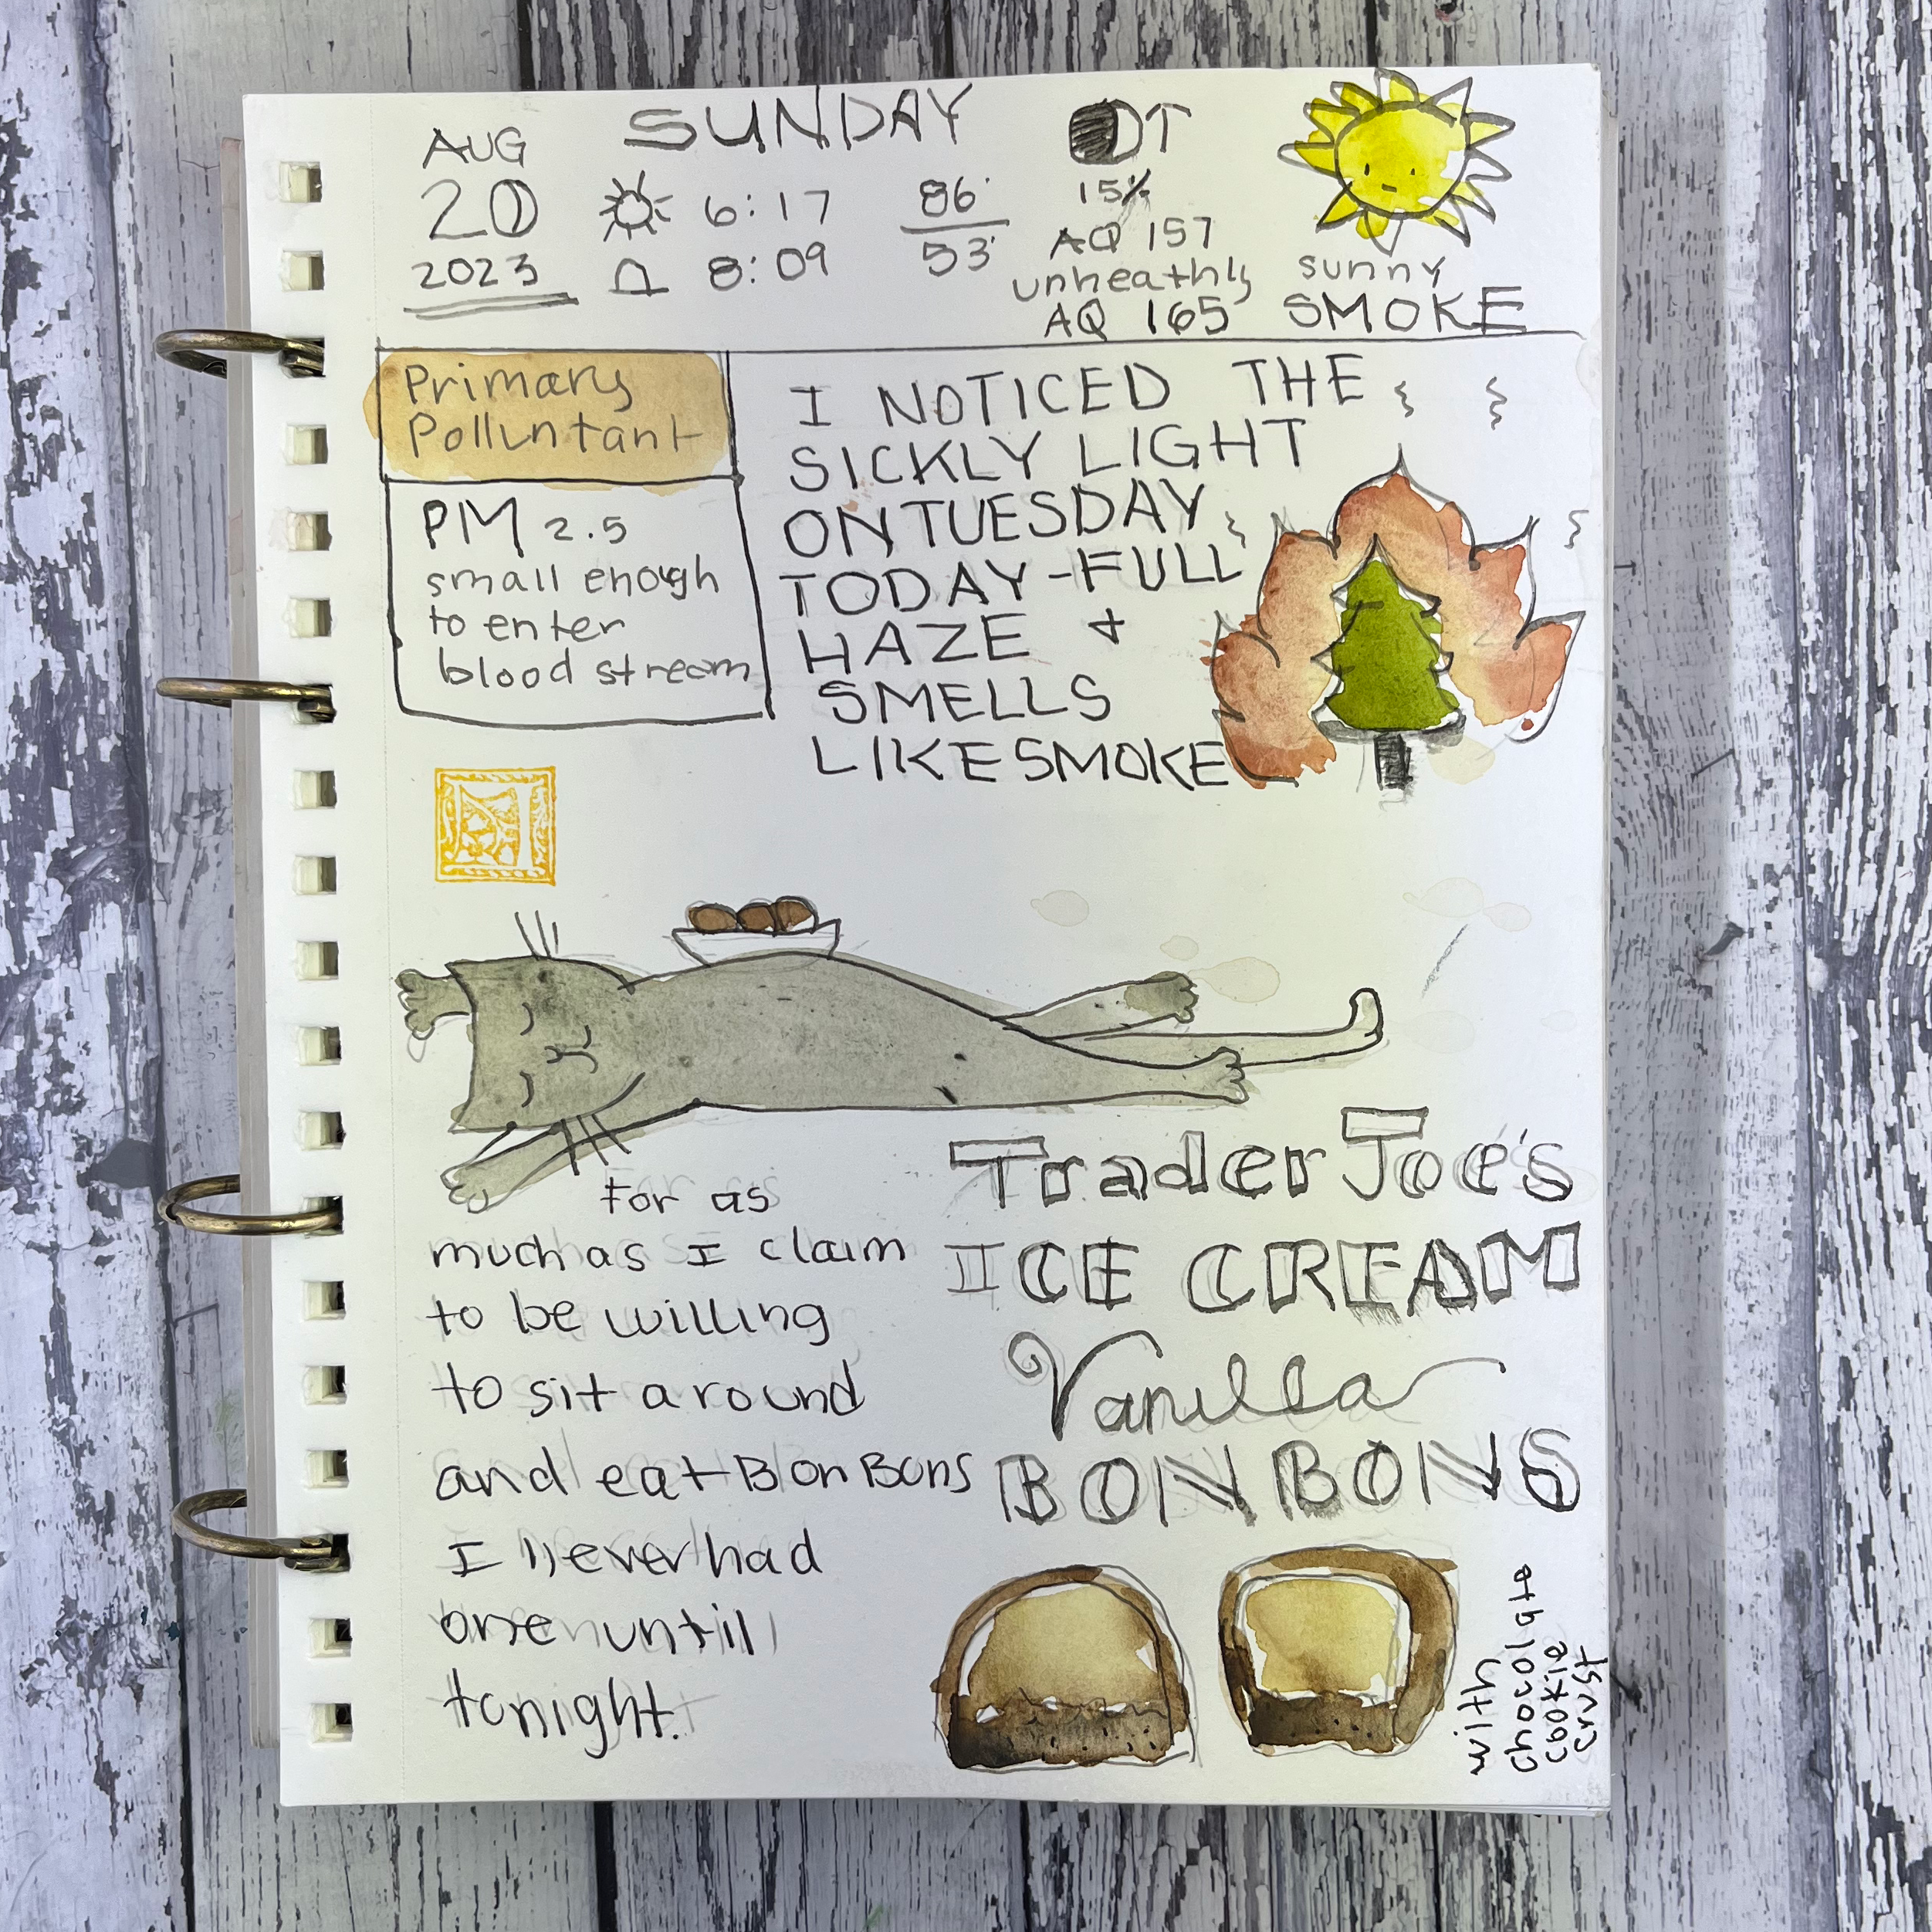 SUNDAY
AUG
20
2023
6:17
8:09
86°
53°
DT
15%
AQ 157
unheathly
AQ 165
sunny
SMOKE
Primary
Polluntant
PM 2.5
small enough
to enter
blood stream
I NOTICED THE
SICKLY LIGHT
ON TUESDAY
TODAY - FULL
HAZE +
SMELLS
LIKE SMOKE
For as
much as I claim
to be willing
to sit around
and eat Bon Bons
I never had
one untill
tonight.
Trader Joe's
ICE CREAM
Vanilla
BON BONS
with
chocolate
cookie
crust